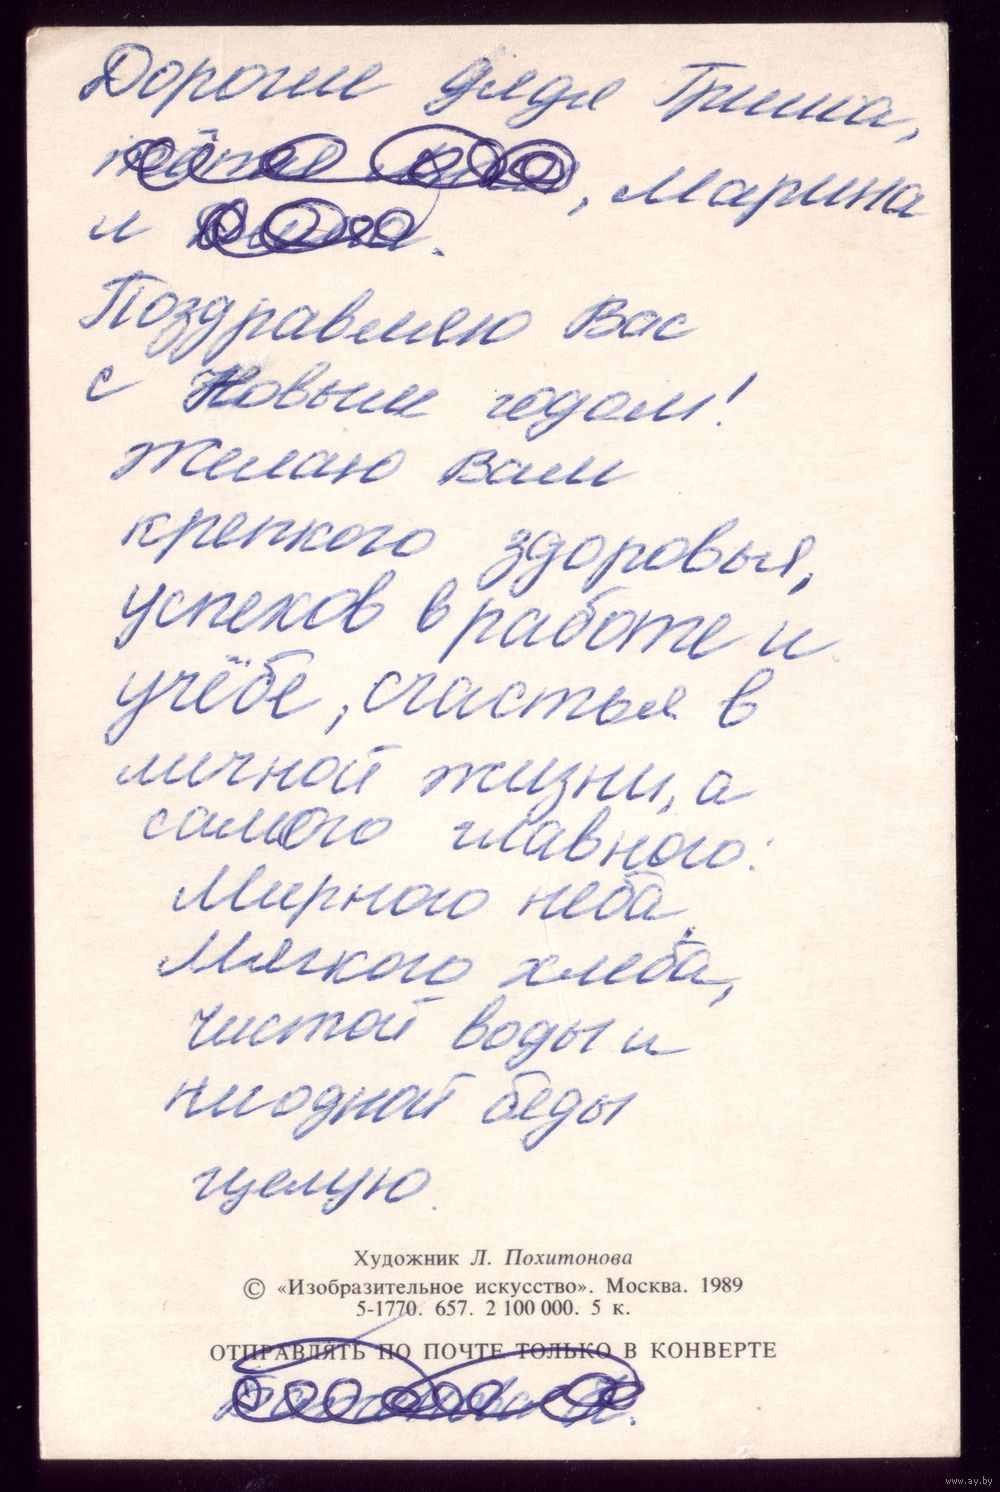 Дорогие дядя Гриша,
тётя , Марина
и
Поздравляю Вас
с Новым годом!
Желаю Вам
крепкого здоровья,
успехов в работе и
учёбе, счастья в
личной жизни, а
самого главного:
Мирного неба,
Мягкого хлеба,
чистой воды и
ни одной беды
целую.
Художник Л. Похитонова
© «Изобразительное искусство». Москва. 1989
5-1770. 657. 2 100 000. 5 к.
ОТПРАВЛЯТЬ ПО ПОЧТЕ ТОЛЬКО В КОНВЕРТЕ
www.ay.by